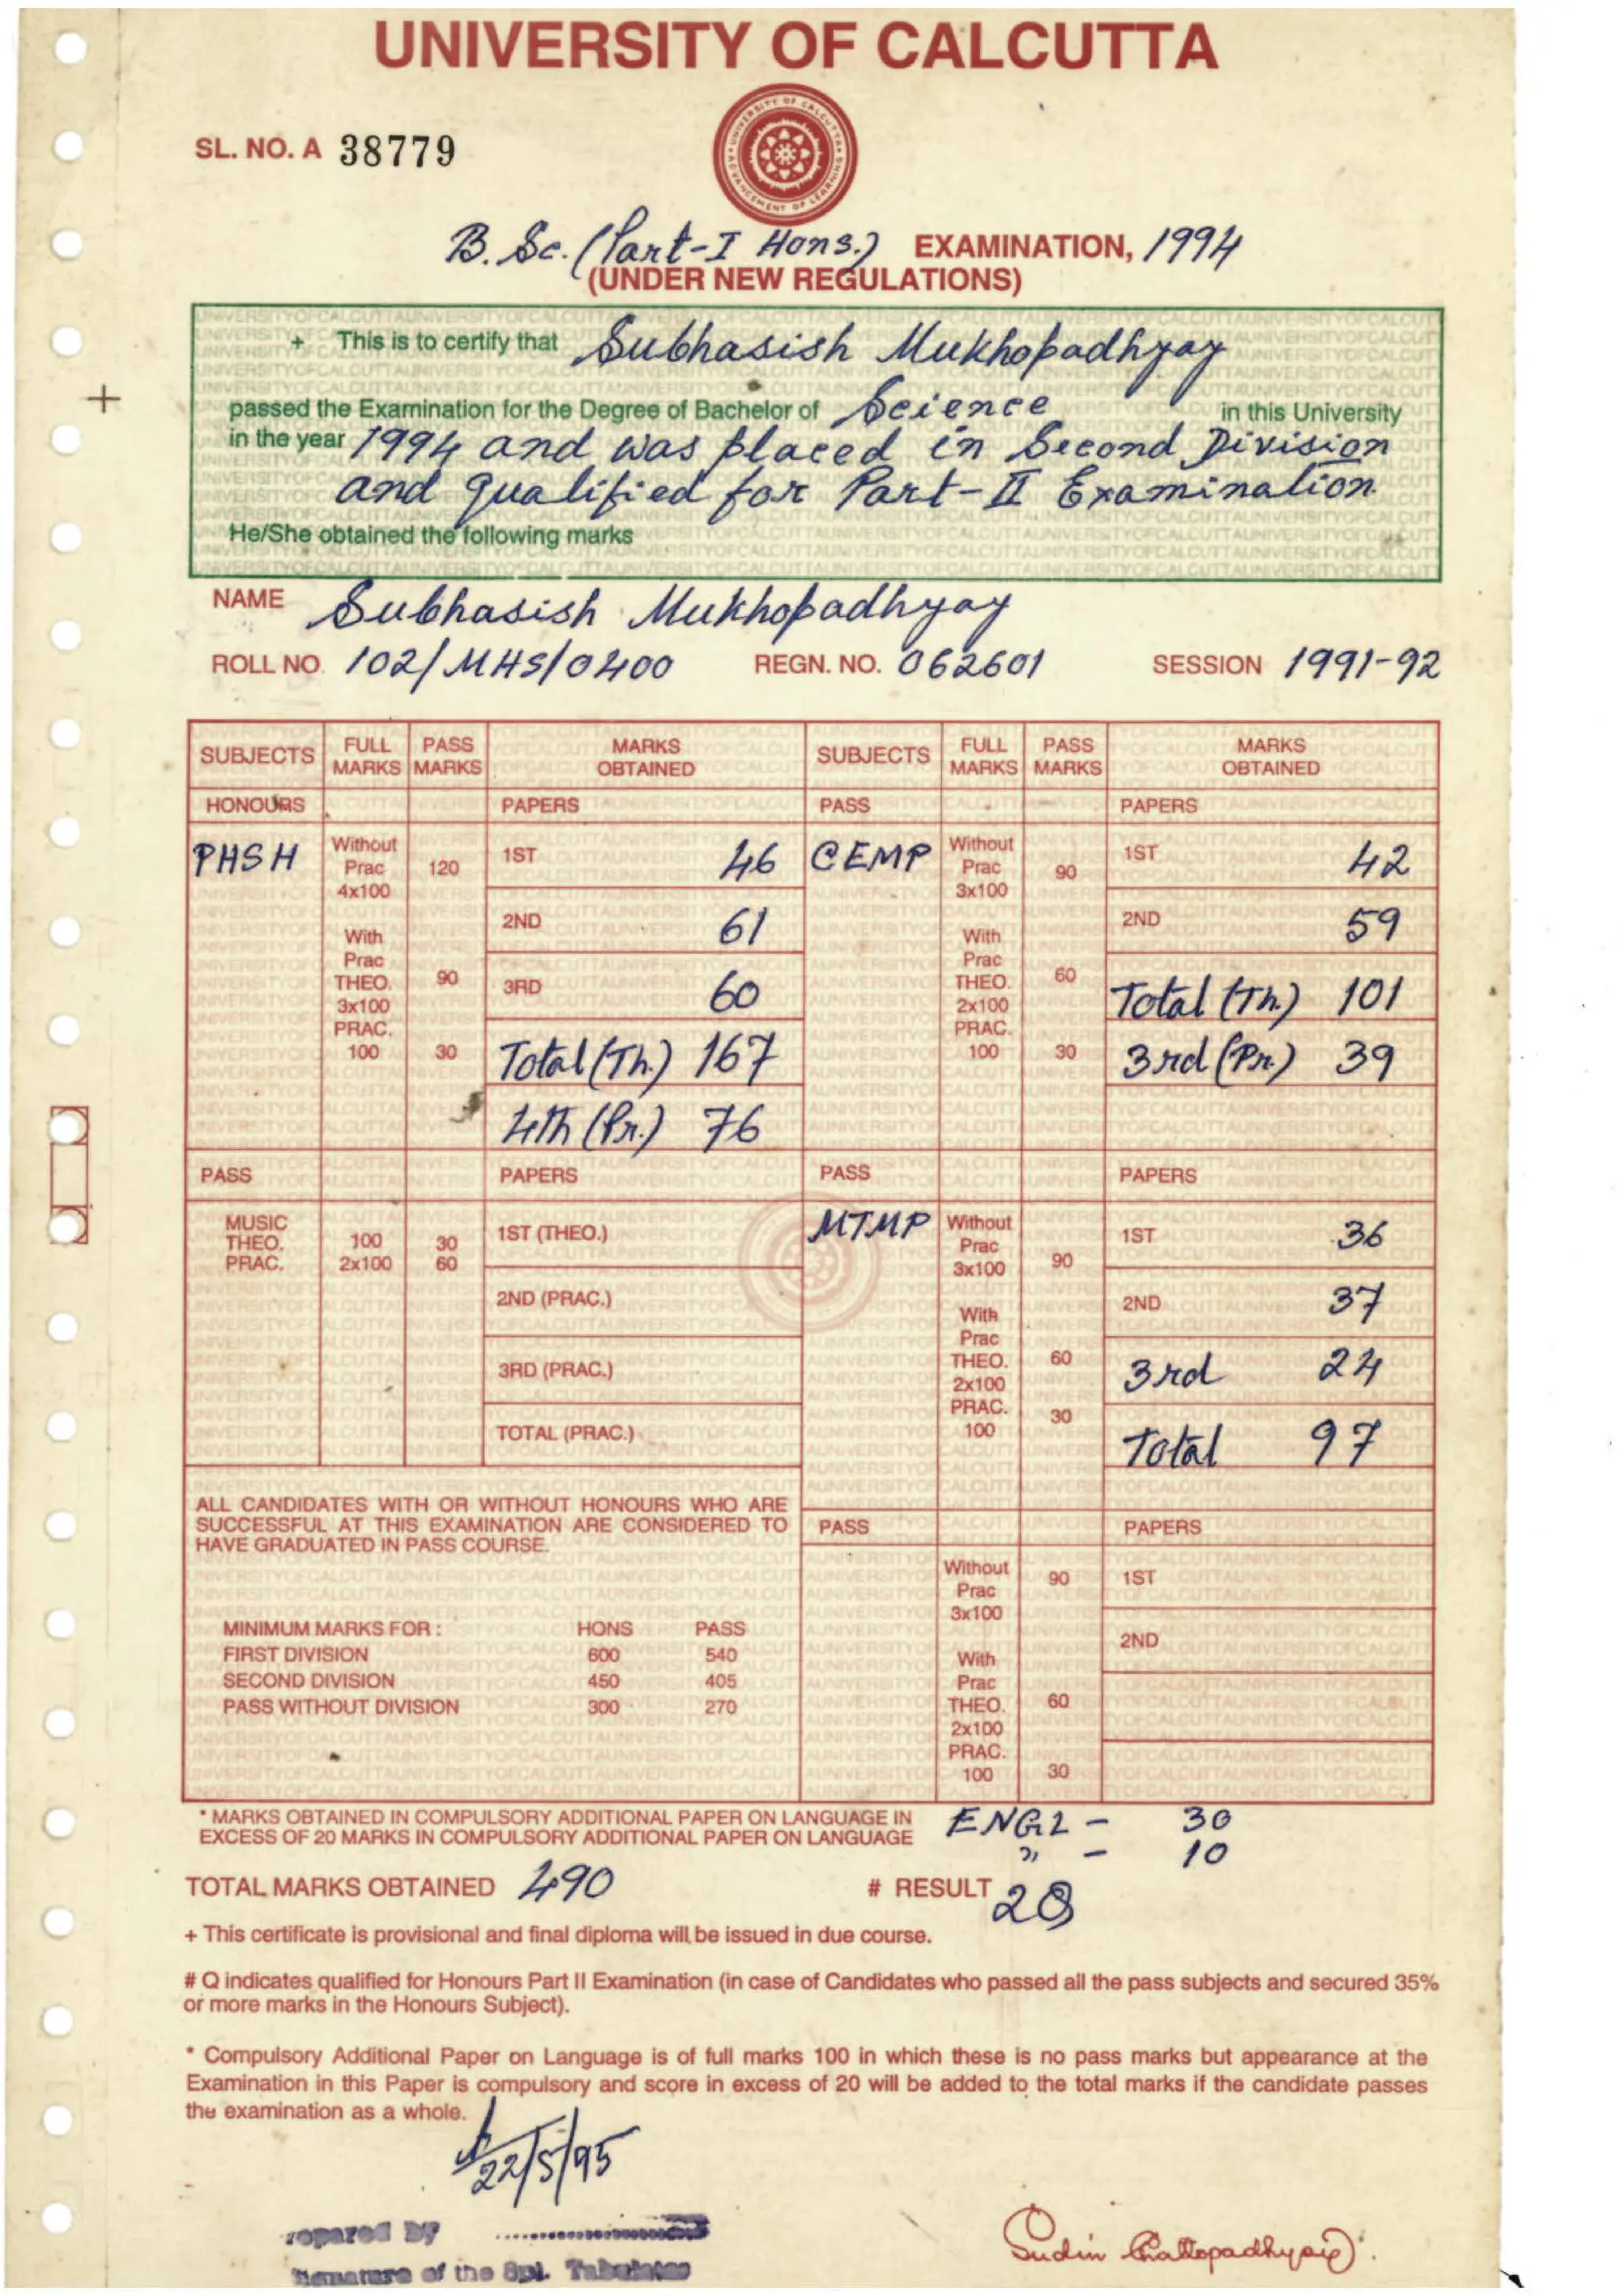 UNIVERSITY OF CALCUTTA
UNIVERSITY OF CALCUTTA
ADVANCEMENT OF LEARNING
SL. NO. A 38779
B. Sc. (Part-I Hons.) EXAMINATION, 1994
(UNDER NEW REGULATIONS)
+ This is to certify that Subhasish Mukhopadhyay
passed the Examination for the Degree of Bachelor of Science in this University
in the year 1994 and was placed in Second Division
and qualified for Part-II Examination.
He/She obtained the following marks
NAME Subhasish Mukhopadhyay
ROLL NO. 102/MHS/0400 REGN. NO. 062601 SESSION 1991-92
SUBJECTS FULL MARKS PASS MARKS MARKS OBTAINED SUBJECTS FULL MARKS PASS MARKS MARKS OBTAINED
HONOURS PAPERS PASS PAPERS
PHSH Without Prac 4x100 120 1ST 46 CEMP Without Prac 3x100 90 1ST 42
2ND 61 2ND 59
With Prac THEO. 3x100 90 3RD 60 With Prac THEO. 2x100 60 Total (Th.) 101
PRAC. 100 30 Total (Th.) 167 PRAC. 100 30 3rd (Pr.) 39
4th (Pr.) 76
PASS PAPERS PASS PAPERS
MUSIC THEO. 100 30 1ST (THEO.) MTMP Without Prac 3x100 90 1ST 36
PRAC. 2x100 60 2ND (PRAC.) 2ND 37
3RD (PRAC.) With Prac THEO. 2x100 60 3rd 24
TOTAL (PRAC.) PRAC. 100 30 Total 97
ALL CANDIDATES WITH OR WITHOUT HONOURS WHO ARE
SUCCESSFUL AT THIS EXAMINATION ARE CONSIDERED TO
HAVE GRADUATED IN PASS COURSE.
PASS PAPERS
Without Prac 3x100 90 1ST
2ND
With Prac THEO. 2x100 60
PRAC. 100 30
MINIMUM MARKS FOR : HONS PASS
FIRST DIVISION 600 540
SECOND DIVISION 450 405
PASS WITHOUT DIVISION 300 270
* MARKS OBTAINED IN COMPULSORY ADDITIONAL PAPER ON LANGUAGE IN ENGL - 30
EXCESS OF 20 MARKS IN COMPULSORY ADDITIONAL PAPER ON LANGUAGE " - 10
TOTAL MARKS OBTAINED 490 # RESULT 2Q
+ This certificate is provisional and final diploma will be issued in due course.
# Q indicates qualified for Honours Part II Examination (in case of Candidates who passed all the pass subjects and secured 35%
or more marks in the Honours Subject).
* Compulsory Additional Paper on Language is of full marks 100 in which these is no pass marks but appearance at the
Examination in this Paper is compulsory and score in excess of 20 will be added to the total marks if the candidate passes
the examination as a whole.
22/5/95
repared by
Signature of the Spl. Tabulator
Sudin Chattopadhyay